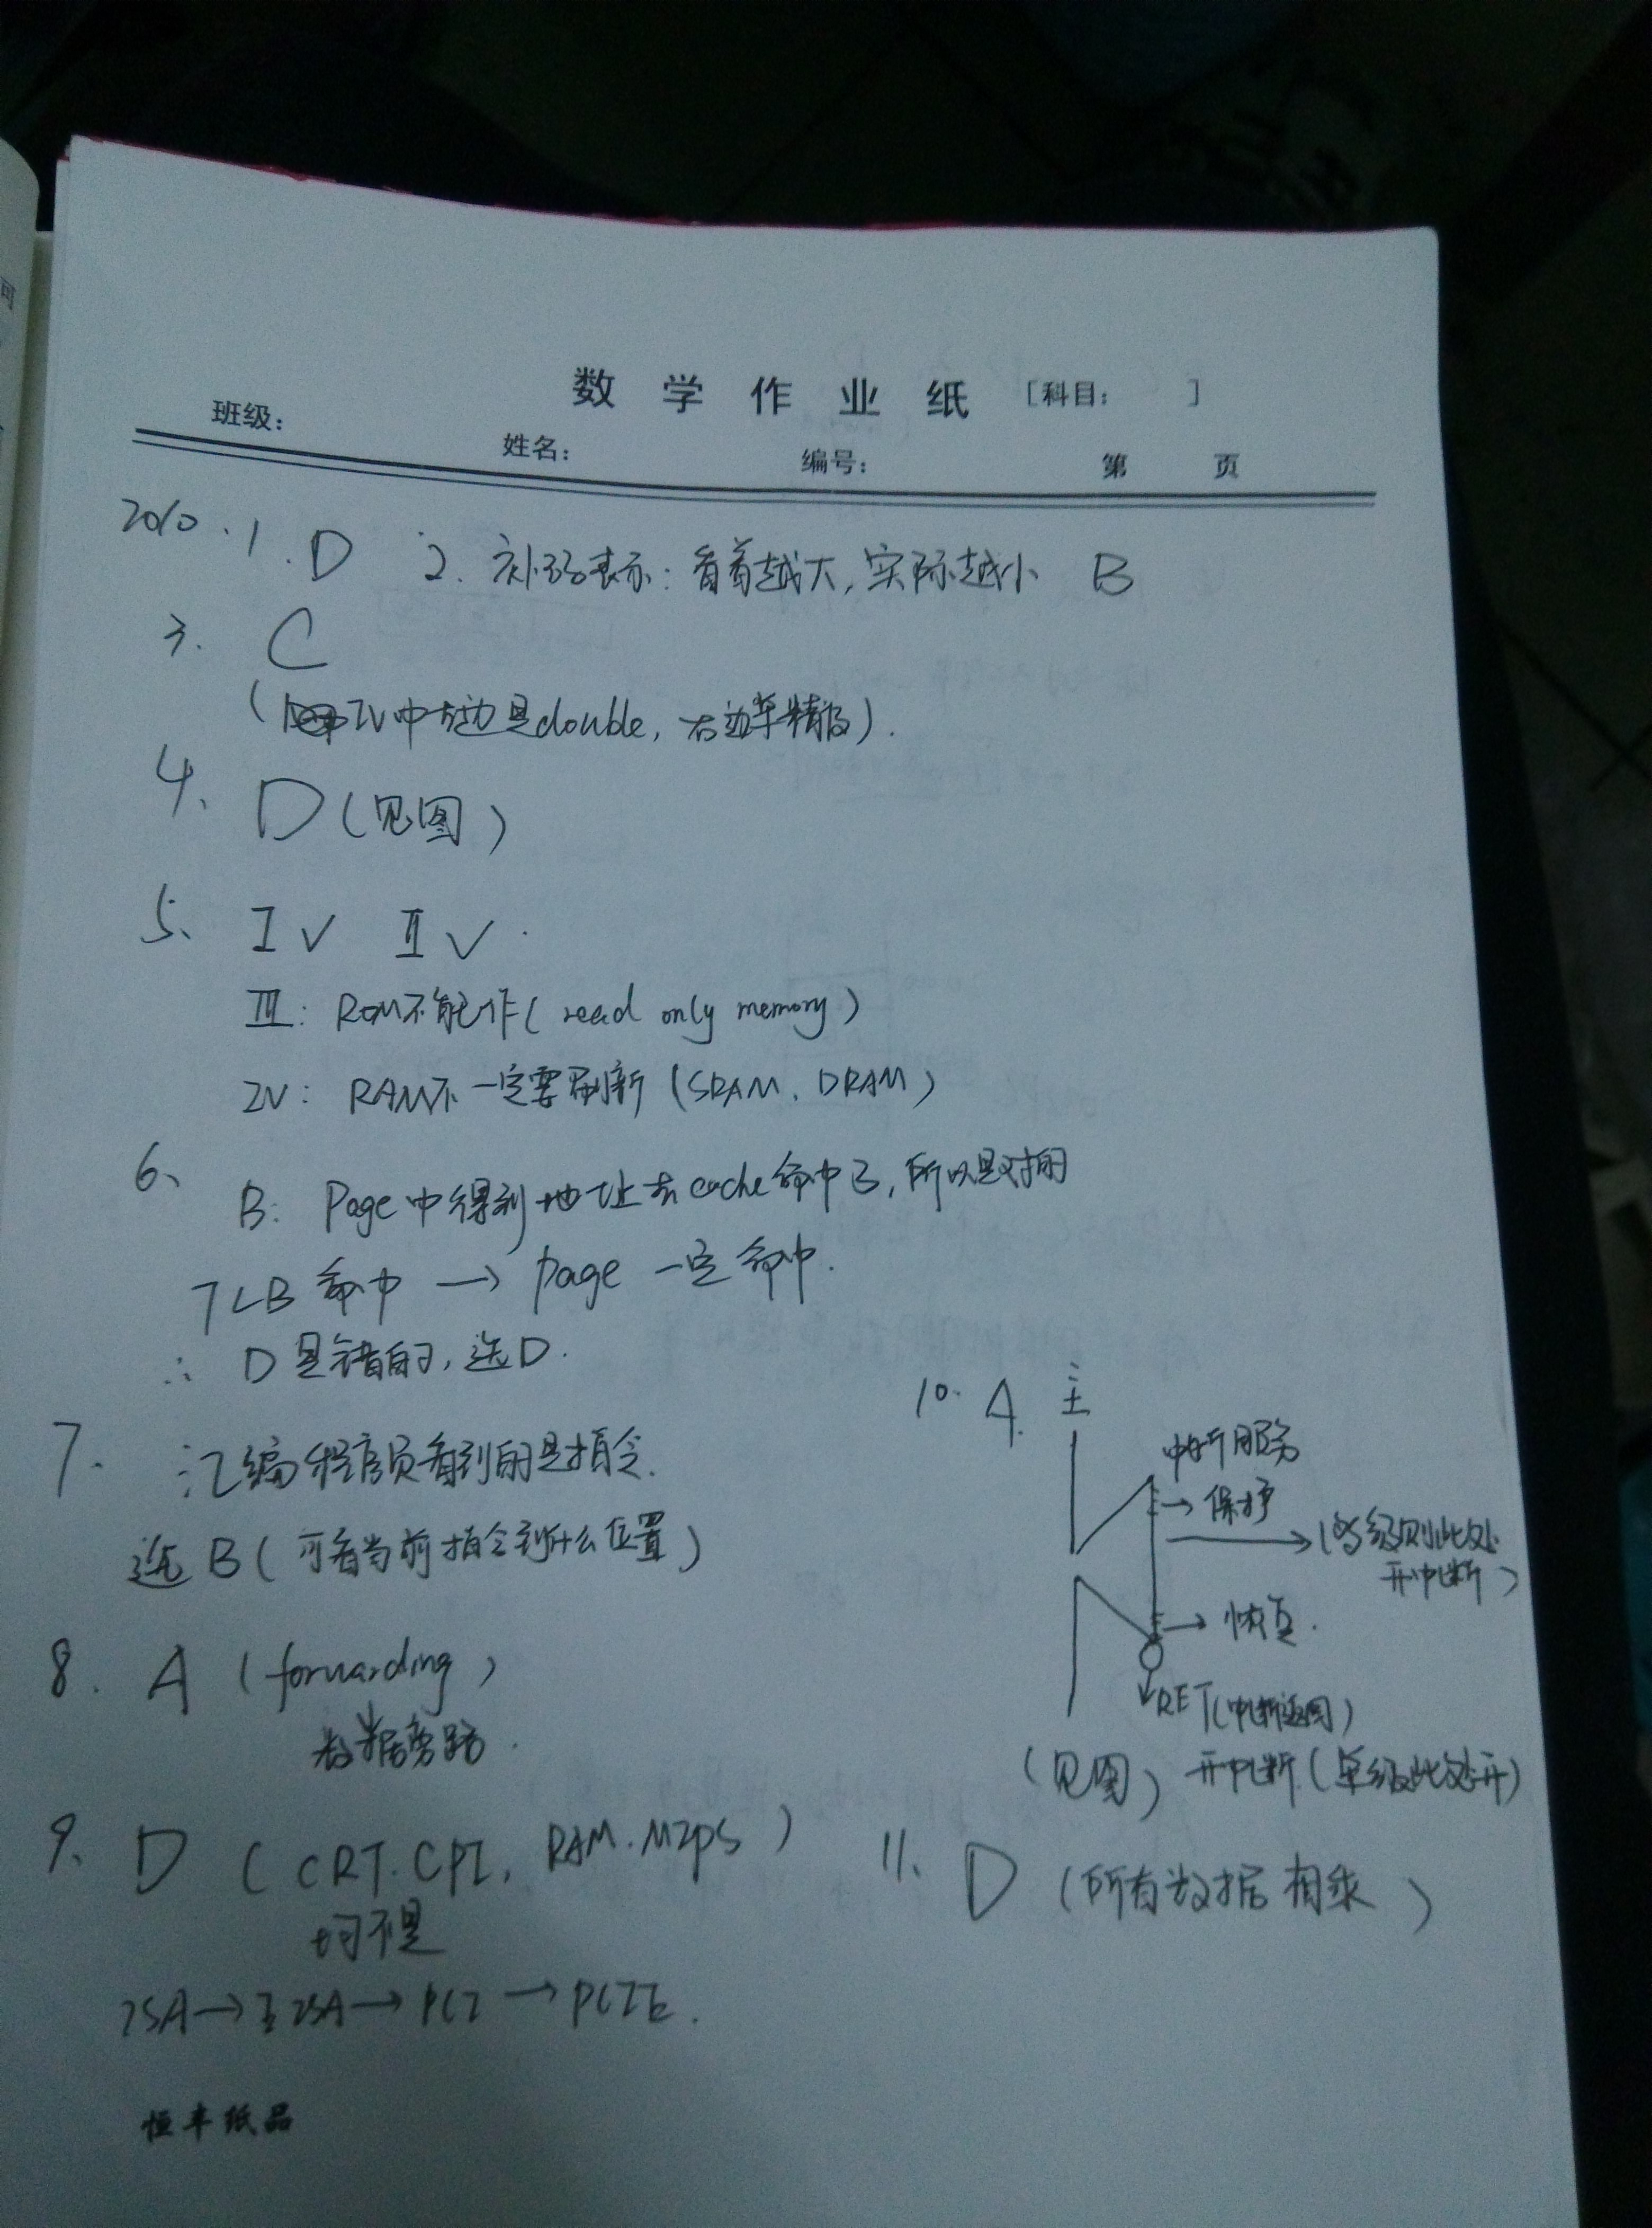 数学作业纸 [科目: ]
班级: 姓名: 编号: 第 页
2010. 1. D 2. 补码表示: 看着越大, 实际越小 B
3. C
( IV中左边是double, 右边单精度).
4、 D (见图)
5、 I √ II √.
III: ROM不能作( read only memory)
IV: RAM不一定要刷新 (SRAM、DRAM)
6、 B: Page中得到地址去cache命中了, 所以是对的
TLB 命中 → page 一定命中.
∴ D是错的, 选D.
7. 汇编程序员看到的是指令.
选B (可看当前指令到什么位置)
8. A (forwarding)
数据旁路.
9、 D ( CRT. CPI, RAM. MIPS )
均不是
ISA→EISA→PCI→PCIE.
10. A. 主
中断服务
→保护
→(多级则此处
开中断)
→恢复.
RET(中断返回)
(见图) 开中断.(单级此处开)
11、 D (所有数据相乘)
恒丰纸品